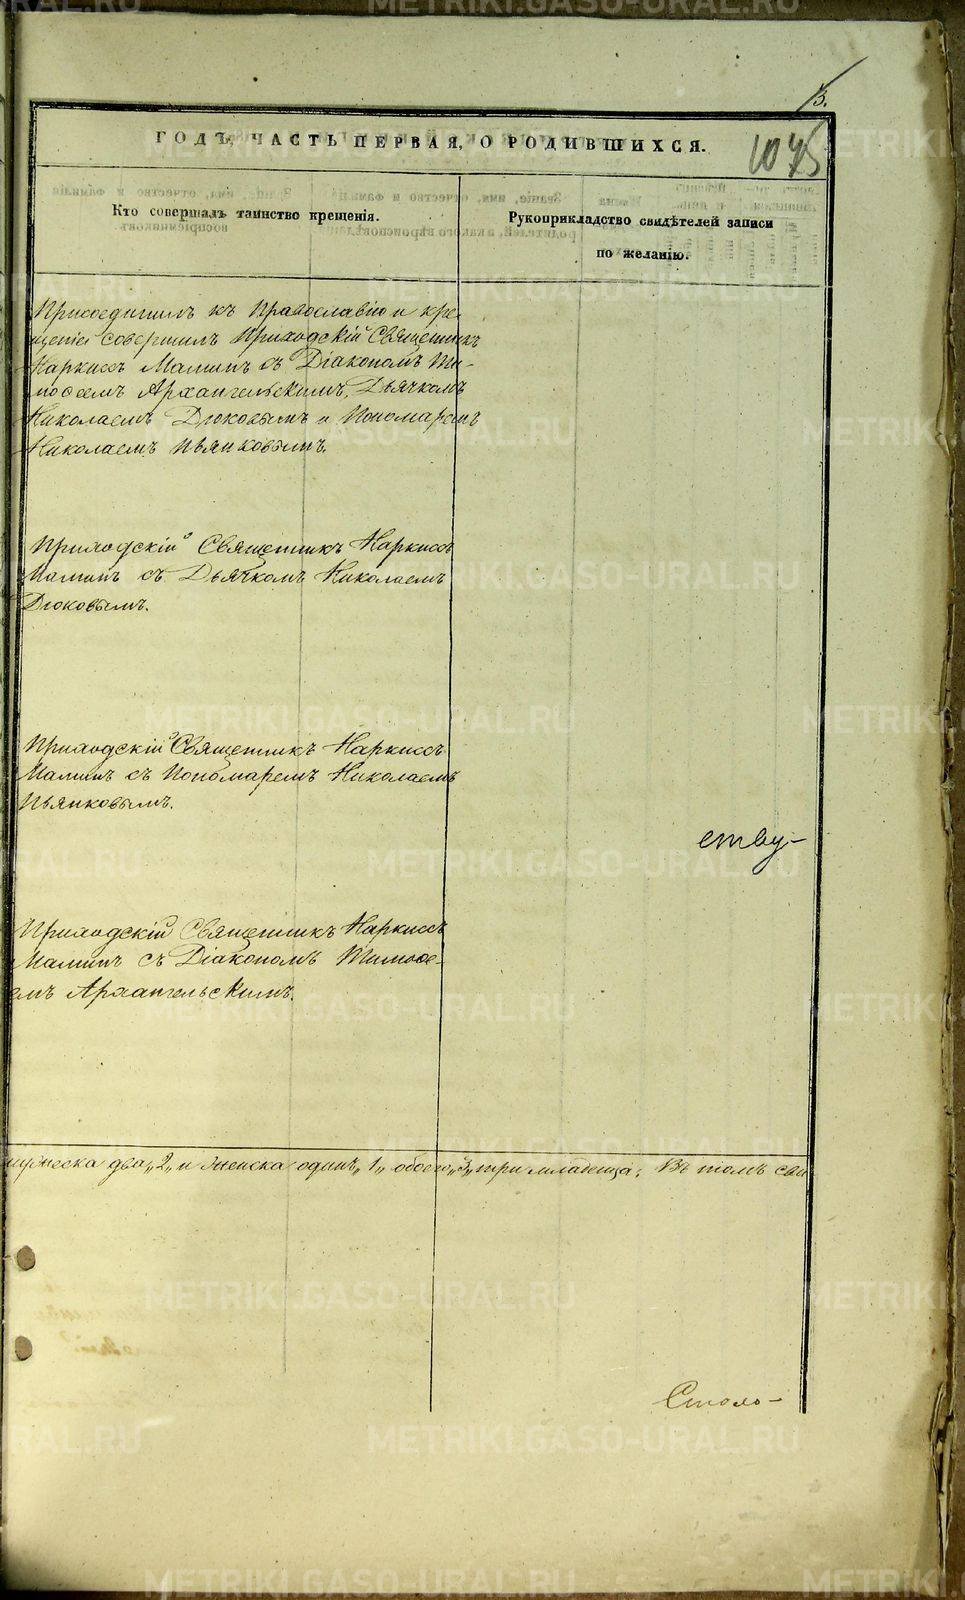 3.
ГОДЪ, ЧАСТЬ ПЕРВАЯ, О РОДИВШИХСЯ.
1075
Кто совершалъ таинство крещенія.
Рукоприкладство свидѣтелей записи
по желанію.
Присоединилъ къ Православію и кре-
щеніе совершилъ Приходскій Священникъ
Наркисъ Маминъ съ Діакономъ Ти-
моѳеемъ Архангельскимъ, Дьячкомъ
Николаемъ Дюковымъ и Пономаремъ
Николаемъ Пьянковымъ.
Приходскій Священникъ Наркисъ
Маминъ съ Дьячкомъ Николаемъ
Дюковымъ.
Приходскій Священникъ Наркисъ
Маминъ съ Пономаремъ Николаемъ
Пьянковымъ.
ству-
Приходскій Священникъ Наркисъ
Маминъ съ Діакономъ Тимоѳе-
емъ Архангельскимъ.
мужеска два „2„ и женска одинъ „1„ обоего „3„ три младенца; Въ томъ сви
Столо-
METRIKI.GASO-URAL.RU